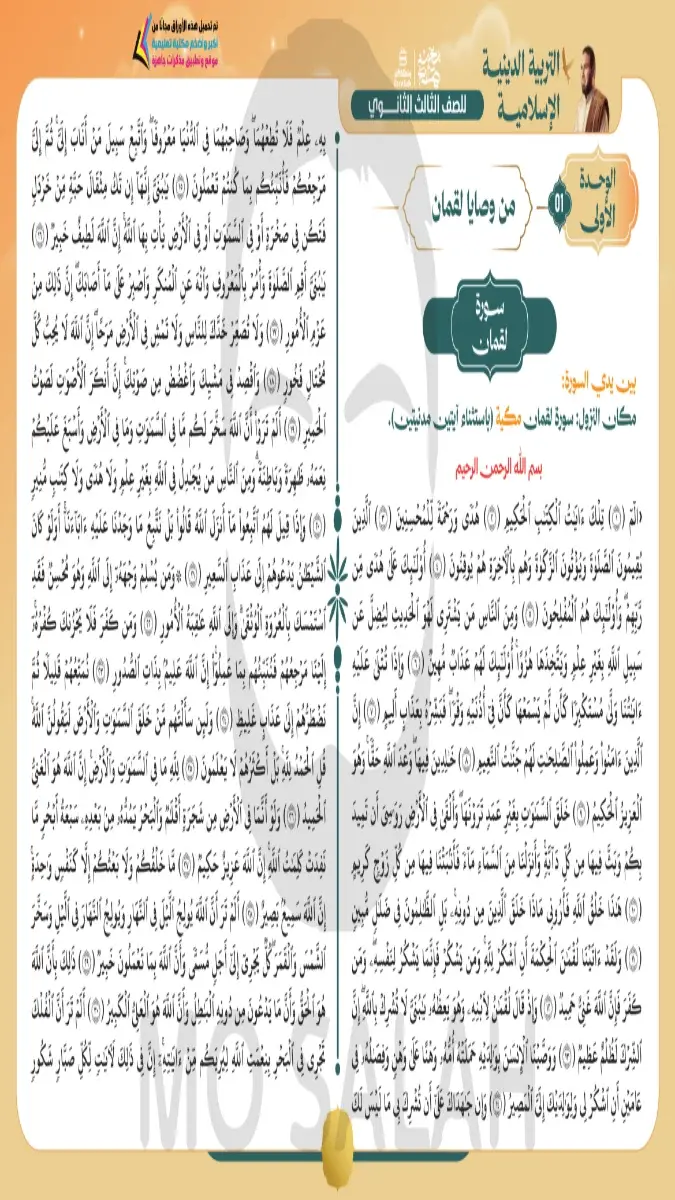 تم تحميل هذه الأوراق مجانًا من
أكبر وأضخم مكتبة تعليمية
موقع وتطبيق مذكرات جاهزة
التربية الدينية
الإسلامية
للصف الثالث الثانوي
الوحدة
الأولى
01
من وصايا لقمان
سورة
لقمان
بين يدي السورة:
مكان النزول: سورة لقمان مكية (باستثناء آيتين مدنيتين).
بسم الله الرحمن الرحيم
﴿الٓمٓ (١) تِلْكَ ءَايَٰتُ ٱلْكِتَٰبِ ٱلْحَكِيمِ (٢) هُدًى وَرَحْمَةً لِّلْمُحْسِنِينَ (٣) ٱلَّذِينَ
يُقِيمُونَ ٱلصَّلَوٰةَ وَيُؤْتُونَ ٱلزَّكَوٰةَ وَهُم بِٱلْءَاخِرَةِ هُمْ يُوقِنُونَ (٤) أُو۟لَٰٓئِكَ عَلَىٰ هُدًى مِّن
رَّبِّهِمْ وَأُو۟لَٰٓئِكَ هُمُ ٱلْمُفْلِحُونَ (٥) وَمِنَ ٱلنَّاسِ مَن يَشْتَرِى لَهْوَ ٱلْحَدِيثِ لِيُضِلَّ عَن
سَبِيلِ ٱللَّهِ بِغَيْرِ عِلْمٍ وَيَتَّخِذَهَا هُزُوًا أُو۟لَٰٓئِكَ لَهُمْ عَذَابٌ مُّهِينٌ (٦) وَإِذَا تُتْلَىٰ عَلَيْهِ
ءَايَٰتُنَا وَلَّىٰ مُسْتَكْبِرًا كَأَن لَّمْ يَسْمَعْهَا كَأَنَّ فِىٓ أُذُنَيْهِ وَقْرًا فَبَشِّرْهُ بِعَذَابٍ أَلِيمٍ (٧) إِنَّ
ٱلَّذِينَ ءَامَنُوا۟ وَعَمِلُوا۟ ٱلصَّٰلِحَٰتِ لَهُمْ جَنَّٰتُ ٱلنَّعِيمِ (٨) خَٰلِدِينَ فِيهَا وَعْدَ ٱللَّهِ حَقًّا وَهُوَ
ٱلْعَزِيزُ ٱلْحَكِيمُ (٩) خَلَقَ ٱلسَّمَٰوَٰتِ بِغَيْرِ عَمَدٍ تَرَوْنَهَا وَأَلْقَىٰ فِى ٱلْأَرْضِ رَوَٰسِىَ أَن تَمِيدَ
بِكُمْ وَبَثَّ فِيهَا مِن كُلِّ دَآبَّةٍ وَأَنزَلْنَا مِنَ ٱلسَّمَآءِ مَآءً فَأَنۢبَتْنَا فِيهَا مِن كُلِّ زَوْجٍ كَرِيمٍ
(١٠) هَٰذَا خَلْقُ ٱللَّهِ فَأَرُونِى مَاذَا خَلَقَ ٱلَّذِينَ مِن دُونِهِۦ بَلِ ٱلظَّٰلِمُونَ فِى ضَلَٰلٍ مُّبِينٍ
(١١) وَلَقَدْ ءَاتَيْنَا لُقْمَٰنَ ٱلْحِكْمَةَ أَنِ ٱشْكُرْ لِلَّهِ وَمَن يَشْكُرْ فَإِنَّمَا يَشْكُرُ لِنَفْسِهِۦ وَمَن
كَفَرَ فَإِنَّ ٱللَّهَ غَنِىٌّ حَمِيدٌ (١٢) وَإِذْ قَالَ لُقْمَٰنُ لِٱبْنِهِۦ وَهُوَ يَعِظُهُۥ يَٰبُنَىَّ لَا تُشْرِكْ بِٱللَّهِ إِنَّ
ٱلشِّرْكَ لَظُلْمٌ عَظِيمٌ (١٣) وَوَصَّيْنَا ٱلْإِنسَٰنَ بِوَٰلِدَيْهِ حَمَلَتْهُ أُمُّهُۥ وَهْنًا عَلَىٰ وَهْنٍ وَفِصَٰلُهُۥ فِى
عَامَيْنِ أَنِ ٱشْكُرْ لِى وَلِوَٰلِدَيْكَ إِلَىَّ ٱلْمَصِيرُ (١٤) وَإِن جَٰهَدَاكَ عَلَىٰٓ أَن تُشْرِكَ بِى مَا لَيْسَ لَكَ
بِهِۦ عِلْمٌ فَلَا تُطِعْهُمَا وَصَاحِبْهُمَا فِى ٱلدُّنْيَا مَعْرُوفًا وَٱتَّبِعْ سَبِيلَ مَنْ أَنَابَ إِلَىَّ ثُمَّ إِلَىَّ
مَرْجِعُكُمْ فَأُنَبِّئُكُم بِمَا كُنتُمْ تَعْمَلُونَ (١٥) يَٰبُنَىَّ إِنَّهَآ إِن تَكُ مِثْقَالَ حَبَّةٍ مِّنْ خَرْدَلٍ
فَتَكُن فِى صَخْرَةٍ أَوْ فِى ٱلسَّمَٰوَٰتِ أَوْ فِى ٱلْأَرْضِ يَأْتِ بِهَا ٱللَّهُ إِنَّ ٱللَّهَ لَطِيفٌ خَبِيرٌ (١٦)
يَٰبُنَىَّ أَقِمِ ٱلصَّلَوٰةَ وَأْمُرْ بِٱلْمَعْرُوفِ وَٱنْهَ عَنِ ٱلْمُنكَرِ وَٱصْبِرْ عَلَىٰ مَآ أَصَابَكَ إِنَّ ذَٰلِكَ مِنْ
عَزْمِ ٱلْأُمُورِ (١٧) وَلَا تُصَعِّرْ خَدَّكَ لِلنَّاسِ وَلَا تَمْشِ فِى ٱلْأَرْضِ مَرَحًا إِنَّ ٱللَّهَ لَا يُحِبُّ كُلَّ
مُخْتَالٍ فَخُورٍ (١٨) وَٱقْصِدْ فِى مَشْيِكَ وَٱغْضُضْ مِن صَوْتِكَ إِنَّ أَنكَرَ ٱلْأَصْوَٰتِ لَصَوْتُ
ٱلْحَمِيرِ (١٩) أَلَمْ تَرَوْا۟ أَنَّ ٱللَّهَ سَخَّرَ لَكُم مَّا فِى ٱلسَّمَٰوَٰتِ وَمَا فِى ٱلْأَرْضِ وَأَسْبَغَ عَلَيْكُمْ
نِعَمَهُۥ ظَٰهِرَةً وَبَاطِنَةً وَمِنَ ٱلنَّاسِ مَن يُجَٰدِلُ فِى ٱللَّهِ بِغَيْرِ عِلْمٍ وَلَا هُدًى وَلَا كِتَٰبٍ مُّنِيرٍ
(٢٠) وَإِذَا قِيلَ لَهُمُ ٱتَّبِعُوا۟ مَآ أَنزَلَ ٱللَّهُ قَالُوا۟ بَلْ نَتَّبِعُ مَا وَجَدْنَا عَلَيْهِ ءَابَآءَنَآ أَوَلَوْ كَانَ
ٱلشَّيْطَٰنُ يَدْعُوهُمْ إِلَىٰ عَذَابِ ٱلسَّعِيرِ (٢١) ۞وَمَن يُسْلِمْ وَجْهَهُۥٓ إِلَى ٱللَّهِ وَهُوَ مُحْسِنٌ فَقَدِ
ٱسْتَمْسَكَ بِٱلْعُرْوَةِ ٱلْوُثْقَىٰ وَإِلَى ٱللَّهِ عَٰقِبَةُ ٱلْأُمُورِ (٢٢) وَمَن كَفَرَ فَلَا يَحْزُنكَ كُفْرُهُۥٓ
إِلَيْنَا مَرْجِعُهُمْ فَنُنَبِّئُهُم بِمَا عَمِلُوٓا۟ إِنَّ ٱللَّهَ عَلِيمٌۢ بِذَاتِ ٱلصُّدُورِ (٢٣) نُمَتِّعُهُمْ قَلِيلًا ثُمَّ
نَضْطَرُّهُمْ إِلَىٰ عَذَابٍ غَلِيظٍ (٢٤) وَلَئِن سَأَلْتَهُم مَّنْ خَلَقَ ٱلسَّمَٰوَٰتِ وَٱلْأَرْضَ لَيَقُولُنَّ ٱللَّهُ
قُلِ ٱلْحَمْدُ لِلَّهِ بَلْ أَكْثَرُهُمْ لَا يَعْلَمُونَ (٢٥) لِلَّهِ مَا فِى ٱلسَّمَٰوَٰتِ وَٱلْأَرْضِ إِنَّ ٱللَّهَ هُوَ ٱلْغَنِىُّ
ٱلْحَمِيدُ (٢٦) وَلَوْ أَنَّمَا فِى ٱلْأَرْضِ مِن شَجَرَةٍ أَقْلَٰمٌ وَٱلْبَحْرُ يَمُدُّهُۥ مِنۢ بَعْدِهِۦ سَبْعَةُ أَبْحُرٍ مَّا
نَفِدَتْ كَلِمَٰتُ ٱللَّهِ إِنَّ ٱللَّهَ عَزِيزٌ حَكِيمٌ (٢٧) مَّا خَلْقُكُمْ وَلَا بَعْثُكُمْ إِلَّا كَنَفْسٍ وَٰحِدَةٍ
إِنَّ ٱللَّهَ سَمِيعٌۢ بَصِيرٌ (٢٨) أَلَمْ تَرَ أَنَّ ٱللَّهَ يُولِجُ ٱلَّيْلَ فِى ٱلنَّهَارِ وَيُولِجُ ٱلنَّهَارَ فِى ٱلَّيْلِ وَسَخَّرَ
ٱلشَّمْسَ وَٱلْقَمَرَ كُلٌّ يَجْرِىٓ إِلَىٰٓ أَجَلٍ مُّسَمًّى وَأَنَّ ٱللَّهَ بِمَا تَعْمَلُونَ خَبِيرٌ (٢٩) ذَٰلِكَ بِأَنَّ ٱللَّهَ
هُوَ ٱلْحَقُّ وَأَنَّ مَا يَدْعُونَ مِن دُونِهِ ٱلْبَٰطِلُ وَأَنَّ ٱللَّهَ هُوَ ٱلْعَلِىُّ ٱلْكَبِيرُ (٣٠) أَلَمْ تَرَ أَنَّ ٱلْفُلْكَ
تَجْرِى فِى ٱلْبَحْرِ بِنِعْمَتِ ٱللَّهِ لِيُرِيَكُم مِّنْ ءَايَٰتِهِۦٓ إِنَّ فِى ذَٰلِكَ لَءَايَٰتٍ لِّكُلِّ صَبَّارٍ شَكُورٍ
MO SALAH